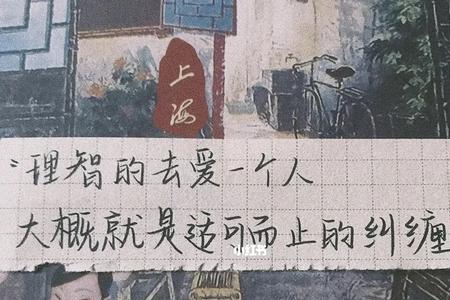 上海
“理智的去爱一个人
大概就是适可而止的纠缠
小红书